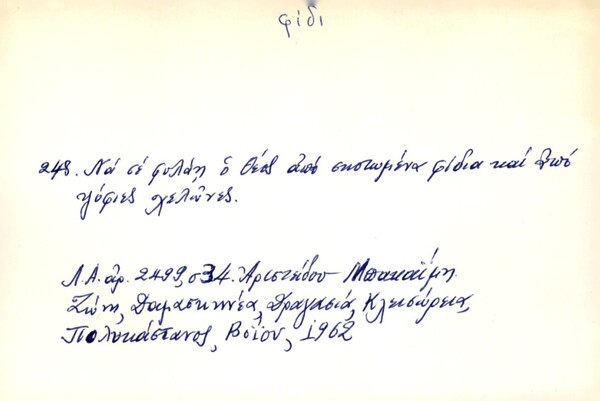 φίδι
248. Νά σέ φυλάη ὁ Θεός ἀπό σηκωμένα φίδια καί ἀπό
γόφιες χελῶνες.
Λ.Α. ἀρ. 2499, σ34. Ἀριστείδου Μπακαΐμη
Ζώνη, Δαμασκηνέα, Δραγασιά, Κλεισώρεια,
Πολυκάστανος, Βοΐου, 1962